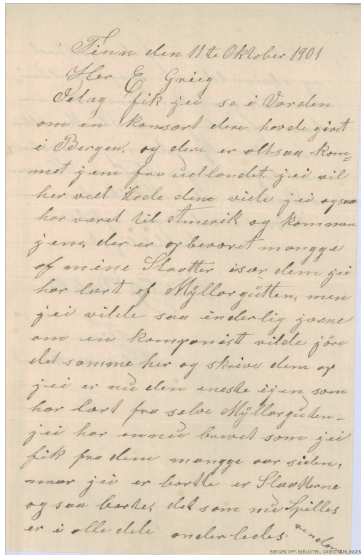 Tinn den 11te Oktober 1901
Her E. Grieg
Idag fik jei se i Varden
om en konsart dere havde givet
i Bergen, og dere er altsaa kom=
met jem fra udlandet jei vil
her ved lade dem vide jei ogsaa
har været til Amerik og kommen
jem, der er opbevaret mangge
af mine Slaatter især dem jei
har lært af Myllargutten, men
jei vilde saa inderlig jærne
om en komponist vilde jöre
det samme her og skrive dem op
jei er nu den eneste ijen som
har lært fra selve Myllarguten-
jei har ennu brevet som jei
fik fra dem mangge aar siden,
naar jei er borte er Slaatterne
og saa borte, det som nu Spilles
er i alle dele anderledes
BERGEN OFF. BIBLIOTEK. GRIEGSAMLINGEN